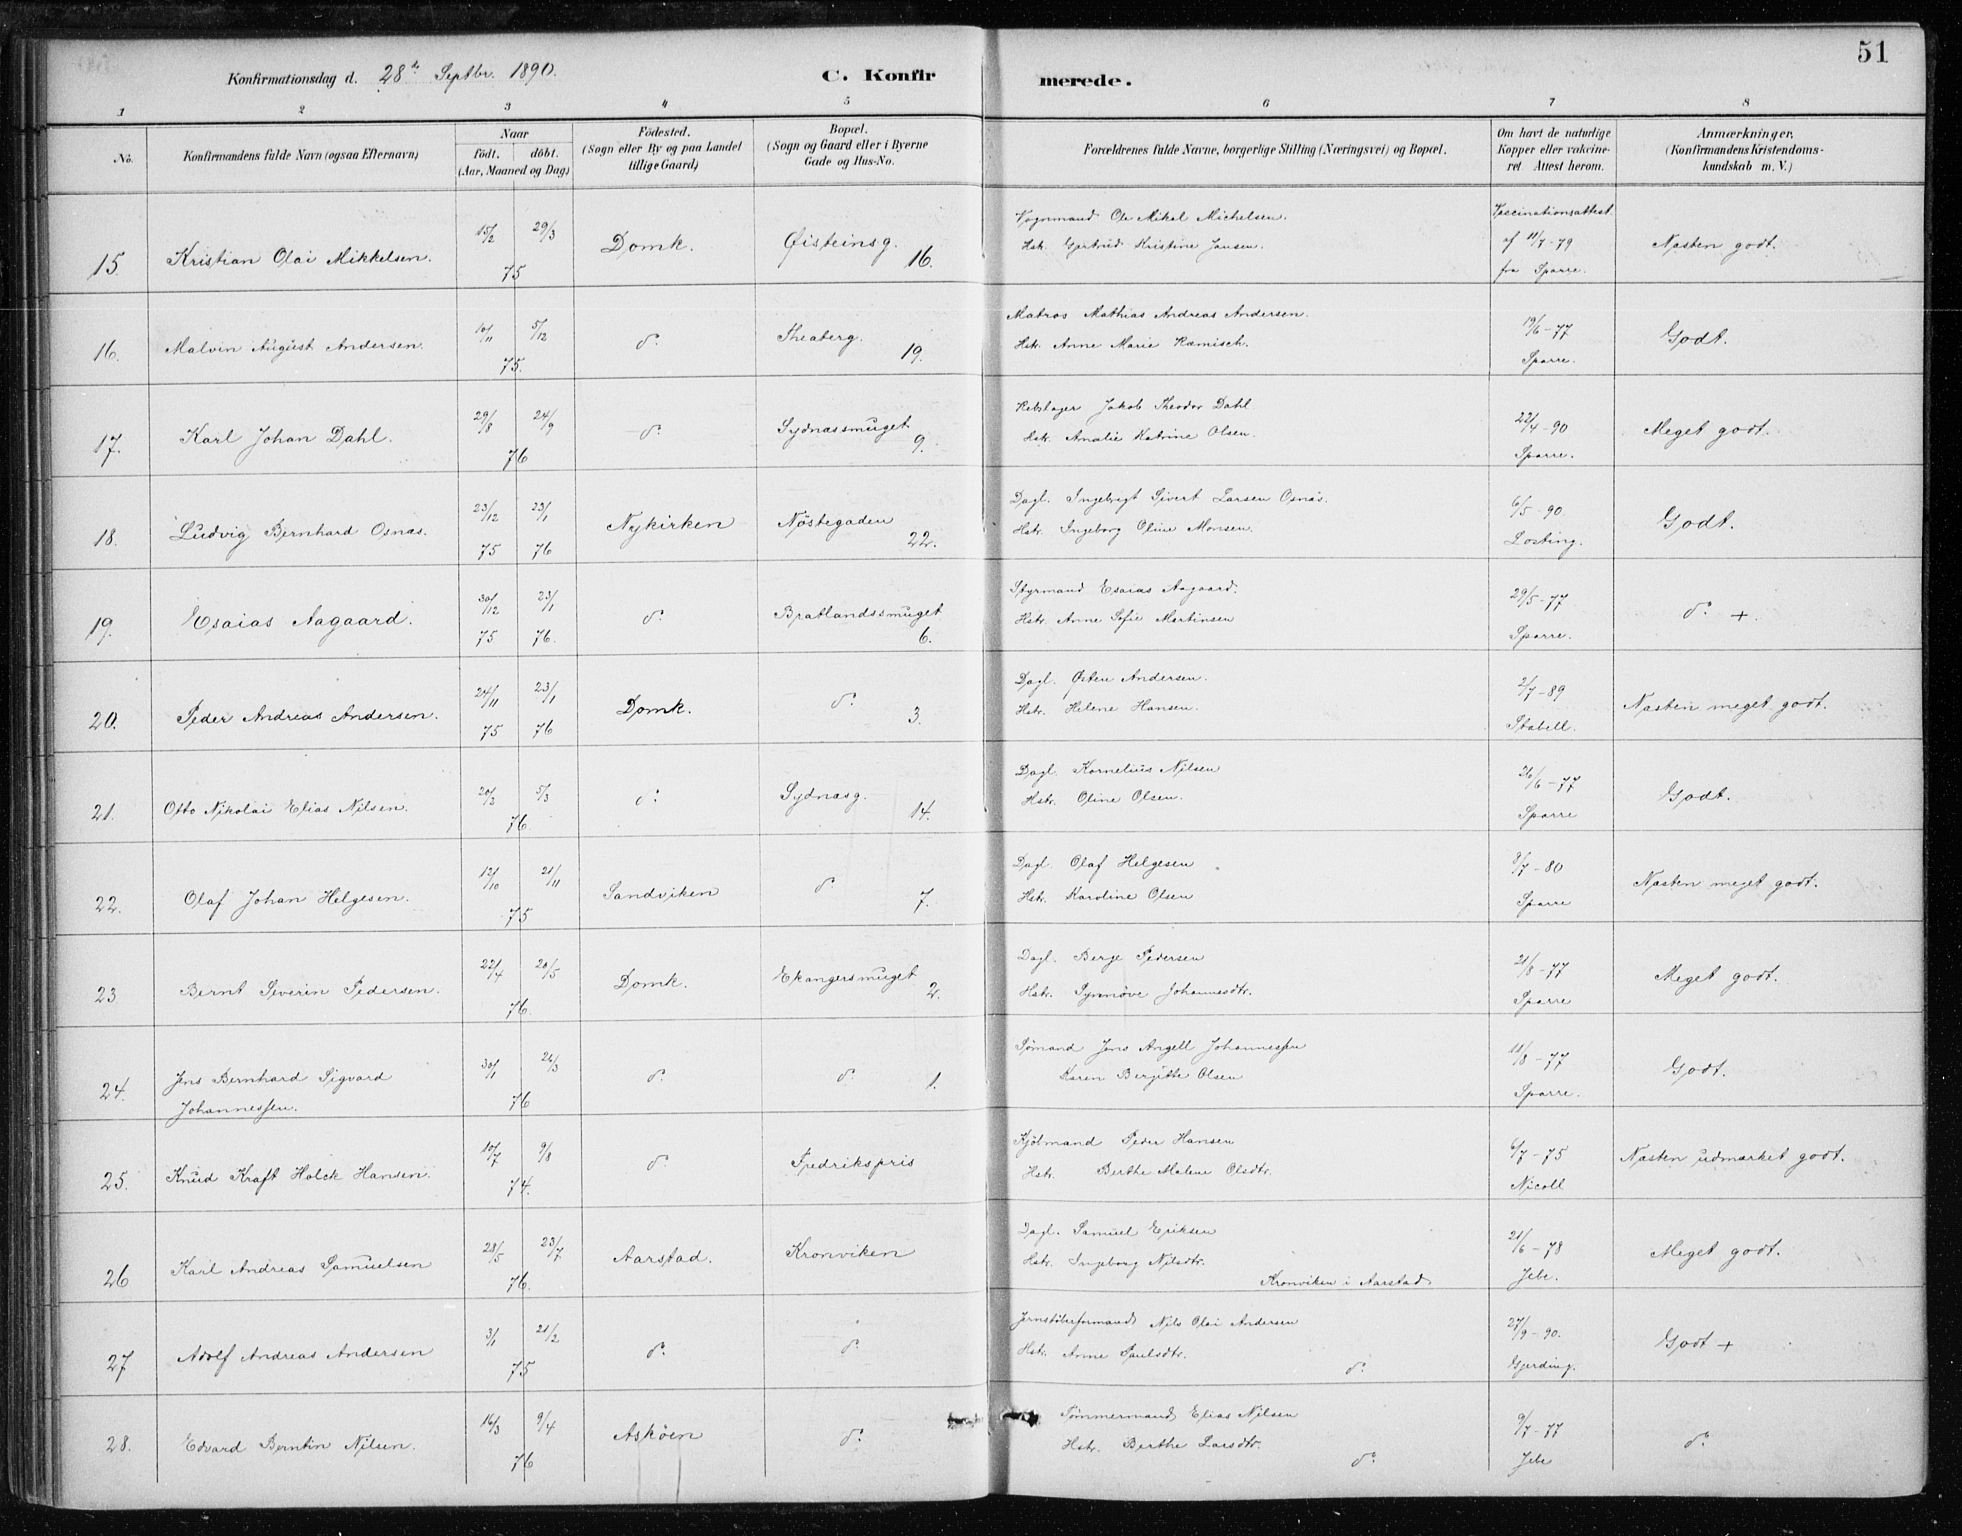 51
Konfirmationsdag d. 28de Septbr. 1890. C. Konfirmerede.
1 2 3 4 5 6 7 8
No. Konfirmandens fulde Navn (ogsaa Efternavn) Naar födt. döbt. (Aar, Maaned og Dag) Födested. (Sogn eller By og paa Landet tillige Gaard) Bopæl. (Sogn og Gaard eller i Byerne Gade og Hus-No. Forældrenes fulde Navne, borgerlige Stilling (Næringsvei) og Bopæl. Om havt de naturlige Kopper eller vakcineret. Attest herom. Anmærkninger. (Konfirmandens Kristendomskundskab m. V.)
15. Kristian Olai Mikkelsen. 15/2 29/3 75 Domk. Øisteinsg. 16. Vognmand Ole Mikal Michelsen. Hstr. Gertrud Kristine Jansen. Vaccinationsattest af 11/7-79 fra Sparre. Næsten godt.
16. Malvin August Andersen. 10/11 5/12 75. do Theaterg. 19. Matros Mathias Andreas Andersen. Hstr. Anne Marie Ramisch. 19/6-77 Sparre. Godt.
17. Karl Johan Dahl. 29/8 24/9 76 do Sydnæssmuget 9. Rebslager Jakob Theodor Dahl Hstr. Amalie Katrine Olsen. 22/4-90 Sparre. Meget godt.
18. Ludvig Bernhard Osnæs. 23/12 75 23/1 76 Nykirken Nöstegaden 22. Dagl. Ingebrigt Sivert Larsen Osnæs. Hstr. Ingeborg Oline Monsen. 6/5-90. Losting. Godt.
19. Esaias Aagaard. 30/12 75 23/1 76. do Bratlandssmuget 6. Styrmand Esaias Aagaard. Hstr. Anne Sofie Martinsen 29/5-77 Sparre. do +.
20. Peder Andreas Andersen. 24/11 75 23/1 76 Domk. do 3. Dagl. Østen Andersen. Hstr. Helene Hansen. 2/7-89 Stabell. Næsten meget godt.
21. Otto Nikolai Elias Nilsen. 20/2 5/3 76. do Sydnæsg. 14. Dagl. Kornelius Nilsen Hstr. Oline Olsen. 26/6-77 Sparre Godt.
22. Olaf Johan Helgesen. 12/10 21/11 75 Sandviken do 7. Dagl. Olaf Helgesen Hstr. Karoline Olsen 8/7-80 Sparre Næsten meget godt.
23 Bernt Severin Pedersen. 22/4 20/5 76. Domk. Ekangersmuget 2. Dagl. Berge Pedersen Hstr. Synnöve Johannesdtr. 21/8-77 Sparre Meget godt.
24. Jens Bernhard Sigvard Johannessen. 30/1 26/3 76 do do 1. Sömand Jens Angell Johannessen Karen Bergitte Olsen 11/8-77 Sparre. Godt.
25. Knud Kraft Holck Hansen. 10/7 9/8 74. do Fredrikspris Kjöbmand Peder Hansen Hstr. Berthe Malene Olsdtr. 6/7-75 Nicoll Næsten udmærket godt.
26 Karl Andreas Samuelsen 28/5 23/7 76. Aarstad. Kronviken Dagl. Samuel Eriksen Hstr. Ingeborg Nilsdtr. Kronviken i Aarstad 21/6-78 Jebe. Meget godt.
27 Adolf Andreas Andersen 3/1 21/2 75 do do Jernstöberformand Nils Olai Andersen Hstr. Anne Paulsdtr. do 27/9-90. Gjerding. Godt +
28. Edvard Berntin Nilsen. 16/3 9/4 76 Asköen do Tömmermand Elias Nilsen Hstr. Berthe Larsdtr. do 9/7-77 Jebe do